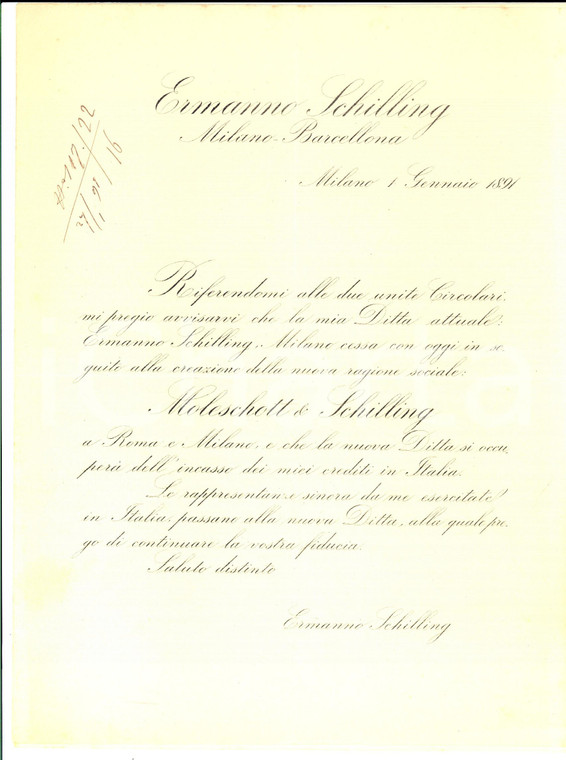 Ermanno Schilling
Milano-Barcellona
Milano 1 Gennaio 1891
Riferendomi alle due unite Circolari,
mi pregio avvisarvi che la mia Ditta attuale:
Ermanno Schilling, Milano cessa con oggi in se,
guito alla creazione della nuova ragione sociale:
Moleschott & Schilling
a Roma e Milano, e che la nuova Ditta si occu,
perà dell'incasso dei miei crediti in Italia.
Le rappresentanze sinora da me esercitate
in Italia, passano alla nuova Ditta, alla quale pre,
go di continuare la vostra fiducia.
Saluto distinto
Ermanno Schilling